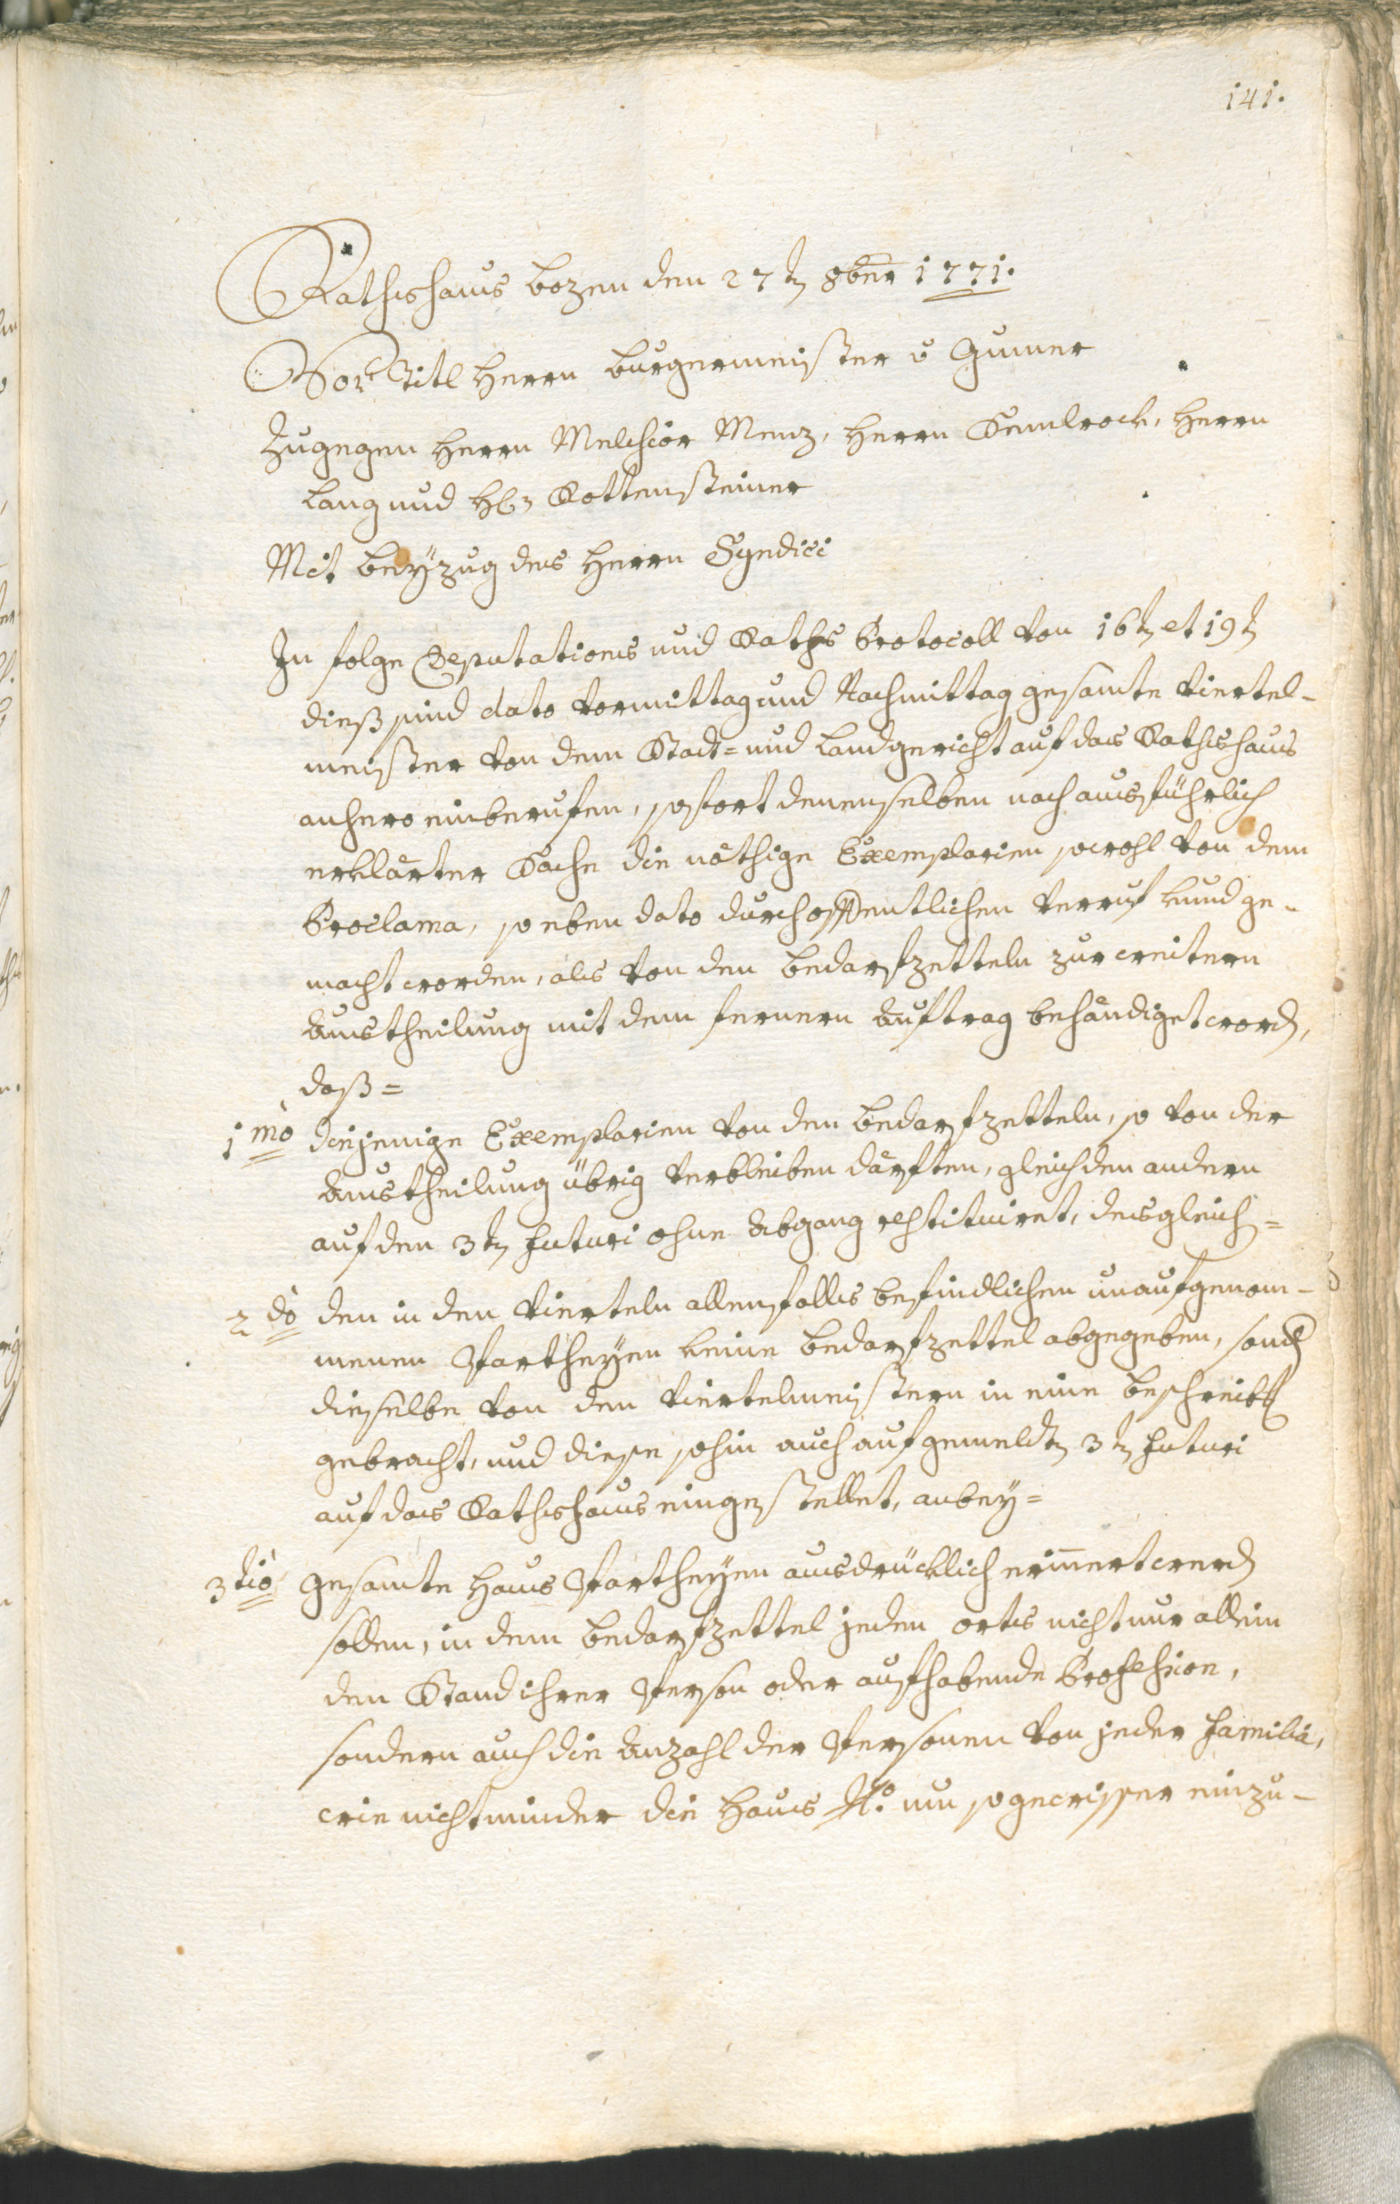 141.
Rathshaus Bozen den 27ten 8ber 1771.
Vor Titl Herrn Burgermeister v Gumer
Zugegen Herrn Melchior Menz, Herrn Semlrock, Herrn
Lang und H Rottensteiner
Mit Beÿzug des Herrn Syndici
In folge Deputations und Raths Protocoll von 16ten et 19ten
dieß sind dato vormittag und Nachmittag gesamte Viertel-
meister von dem Stadt- und Landgericht auf das Rathshaus
anhero einberufen, sofort denenselben nach ausführlich
erklärter Sache die nöthige Exemplarien sowohl von dem
Proclama, so eben dato durch offentlichen Verruf kund ge-
macht worden, als von den Bedarfzetteln zur weitern
Austheilung mit dem fernern Auftrag behändiget worden,
daß=
1mo diejenige Exemplarien von den Bedarfzetteln, so von der
Austheilung übrig verbleiben därften, gleich den andern
auf den 3ten futuri ohne Abgang restituiret, desgleich=
2do den in den Vierteln allenfalls befindlichen unaufgenom-
menen Partheÿen keine Bedarfzettel abgegeben, sondern
dieselbe von den Viertelmeistern in eine Beschreibung
gebracht, und diese sohin auch auf gemeldten 3ten futuri
auf das Rathshaus eingestellet, anbey=
3tio gesamte Haus Partheÿen ausdrücklich erinnert werden
sollen, in dem Bedarfzettel jeden orts nicht nur allein
den Stand ihrer Person oder aufhabende Profession,
sondern auch die Anzahl der Personen von jeder Familia,
wie nicht minder die Haus No. um so gewisser einzu-